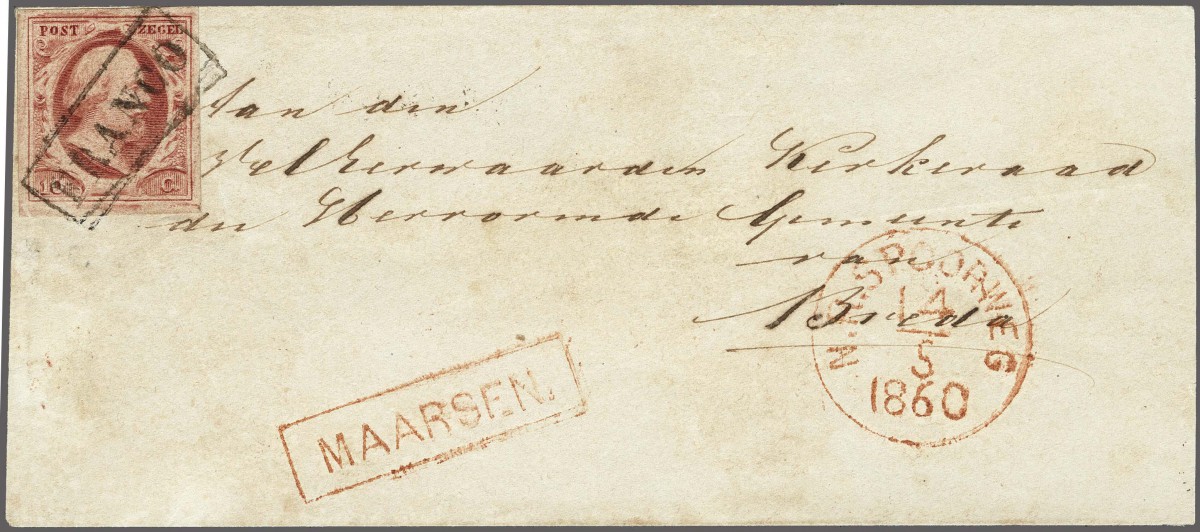 POST ZEGEL
FRANCO
10 C
Aan den
Weleerwaarden Kerkeraad
der Hervormde Gemeente
van
Breda
N.R.SPOORWEG
14
5
1860
MAARSEN.